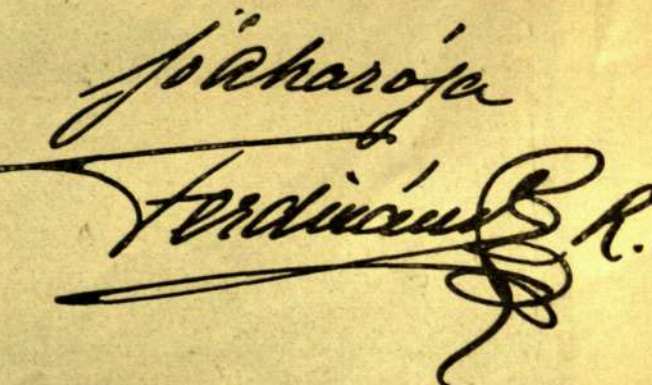 jóakarója
Ferdinánd R.